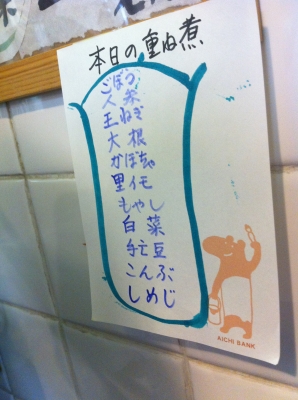 本日の重ね煮
ごぼう
人参
玉ねぎ
大根
かぼちゃ
里イモ
もやし
白菜
手亡豆
こんぶ
しめじ
AICHI BANK